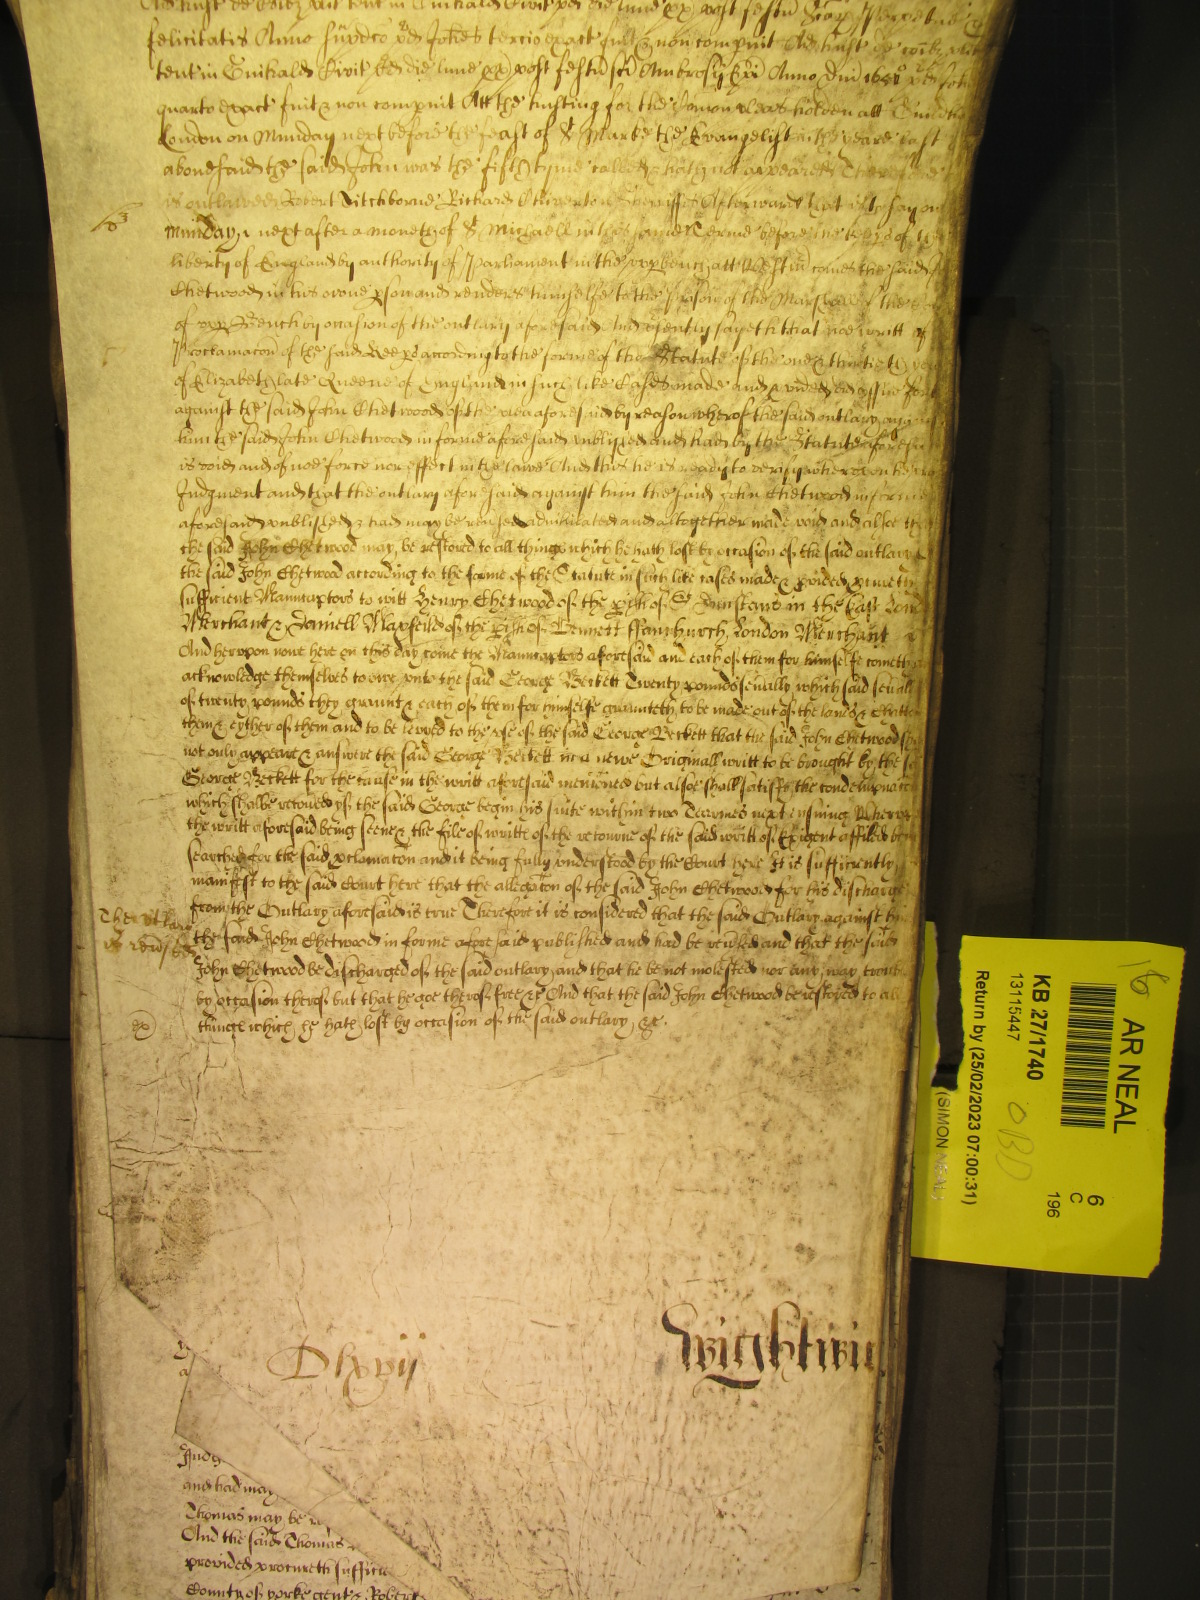 felicitatis Anno supdco pd Johes tercio exact fuit & non compuit Ad hust de
tent in Guihald Civit pd die lune px post festu sci Ambrosij Anno dni 1651
quarto exact fuit & non compuit Att the husting for the Comon pleas holden att Guild
London on Munday next before the feast of St Marke the Evangelist in the yeare last
abovesaid the said John was the fifth tyme called & hath not appeared Therefore
is outlawed Robert Titchborne Richard Chiverton Sheriffes Afterwards that is to say on
63
Munday next after a moneth of St Michaell in this same Terme before the keepers of the
liberty of England by authority of Parliament in the upper bench att Westm comes the said
Chetwood in his owne pson and renders himselfe to the prison of the Marshall of the
of upp Bench by occasion of the outlary aforesaid And psently sayeth that noe writt of
Proclamacon of the said keeps according to the forme of the Statute of the one & thirtieth yeare
of Elizabeth late Queene of England in such like Cases made and pvided did issue forth
against the said John Chetwood of the plea aforesaid by reason wherof the said outlary against
him the said John Chetwood in forme aforesaid published and had by the Statute aforesaid
is void and of noe force nor effect in the lawe And this he is ready to verify wherupon he
Judgment and that the outlary aforesaid against him the said John Chetwood in forme
aforesaid published & had may be revised adnihilated and altogether made void and alsoe that
the said John Chetwood may be restored to all things which he hath lost by occasion of the said outlary
the said John Chetwood according to the forme of the Statute in such like cases made & pvided
sufficient Manucaptors to witt Henry Chetwood of the pish of St Dunstans in the East London
Merchant & Daniell Maxfeild of the pish of Bennett ffanchurch London Merchant
And herupon nowe here on this day come the Manucaptors aforesaid and each of them for himselfe cometh
acknowledge themselves to owe unto the said George Beckett Twenty pounds sevally which said sevall
of twenty pounds they graunt & each of them for himselfe graunteth to be made out of the lands & Chattells
them & eyther of them and to be levyed to the use of the said George Beckett that the said John Chetwood
not only appeare & answere the said George Beckett in a newe Originall writt to be brought by the
George Beckett for the cause in the writt aforesaid mencioned but alsoe shall satisfy the condempnacon
which shalbe recoued yf the said George begin his suite within two Tearmes next ensuing
the writt aforesaid being seene & the file of writts of the retourne of the said writt of Exigent affiled being
searched for the said pclamacon and it being fully understood by the Court here It is sufficiently
manifest to the said Court here that the allegacon of the said John Chetwood for his discharge
from the Outlary aforesaid is true Therefore it is considered that the said Outlary against
The outlary
is revised
the said John Chetwood in forme aforesaid published and had be revised and that the said
John Chetwood be discharged of the said outlary and that he be not molested nor any way
by occasion therof but that he goe therof free &c And that the said John Chetwood be restored to all
things which he hath lost by occasion of the said outlary &c.
ex
Dlxvij
Wightwic
Judg
and had may
Thomas may be
And the said Thomas
provided procureth sufficie
County of Yorke gent & Robert
16
AR NEAL
KB 27/1740
13115447
Return by (25/02/2023 07:00:31)
(SIMON NEAL)
6
C
196
OBD